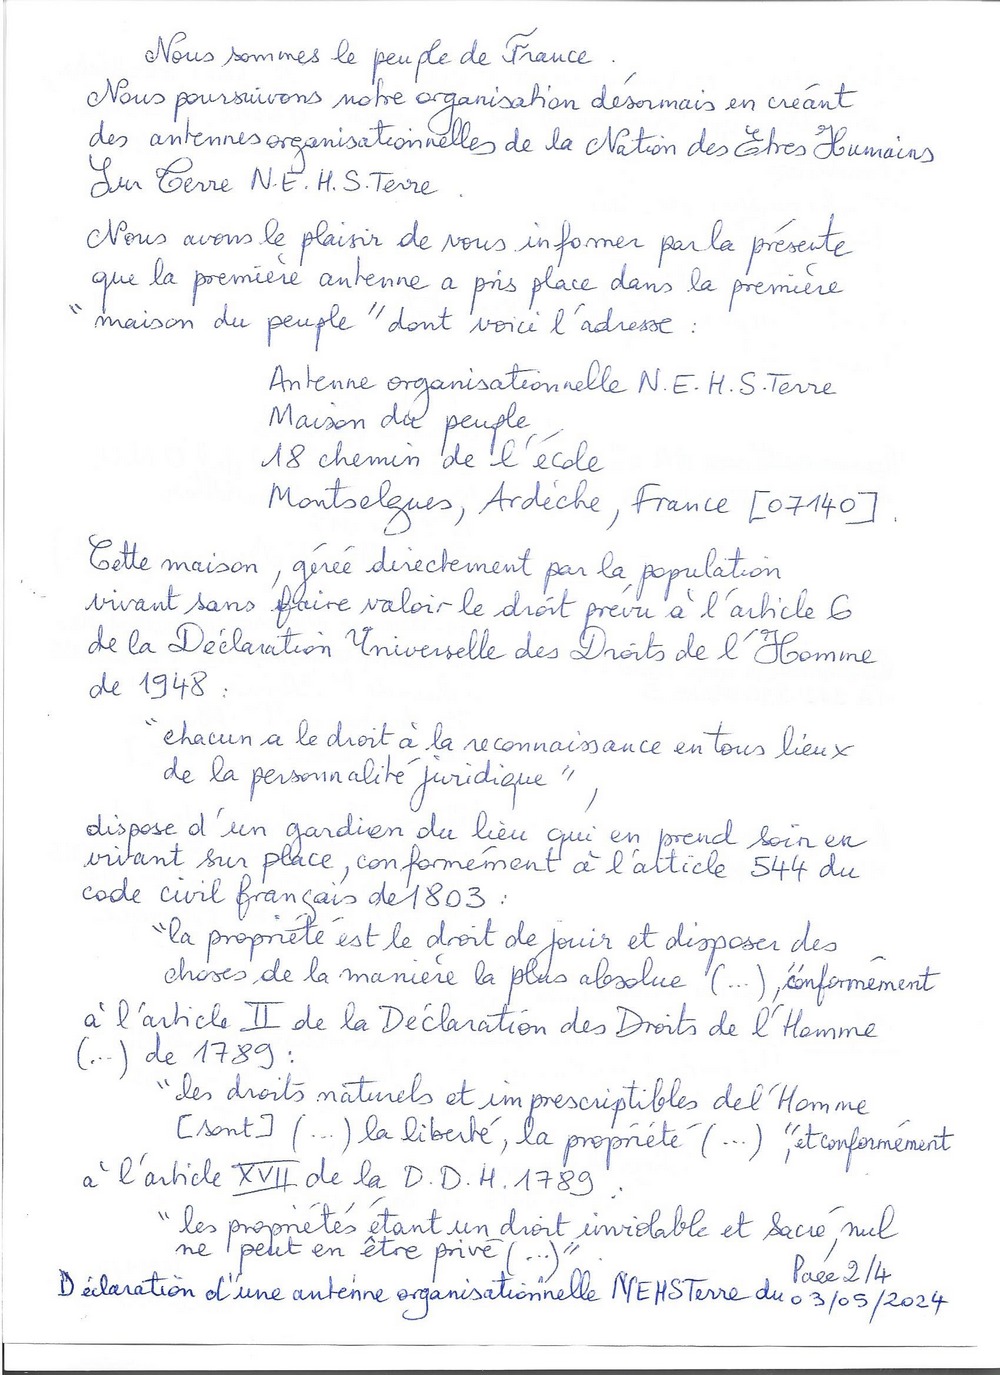 Nous sommes le peuple de France.
Nous poursuivons notre organisation désormais en créant
des antennes organisationnelles de la Nation des Etres Humains
Sur Terre N.E.H.S.Terre.
Nous avons le plaisir de vous informer par la présente
que la première antenne a pris place dans la première
"maison du peuple" dont voici l'adresse :
Antenne organisationnelle N.E.H.S.Terre
Maison du peuple
18 chemin de l'école
Montselgues, Ardèche, France [07140].
Cette maison, gérée directement par la population
vivant sans faire valoir le droit prévu à l'article 6
de la Déclaration Universelle des Droits de l'Homme
de 1948 :
"chacun a le droit à la reconnaissance en tous lieux
de la personnalité juridique",
dispose d'un gardien du lieu qui en prend soin en
vivant sur place, conformément à l'article 544 du
code civil français de 1803 :
"la propriété est le droit de jouir et disposer des
choses de la manière la plus absolue (...)", conformément
à l'article II de la Déclaration des Droits de l'Homme
(...) de 1789 :
"les droits naturels et imprescriptibles de l'Homme
[sont] (...) la liberté, la propriété (...)", et conformément
à l'article XVII de la D.D.H. 1789 :
"les propriétés étant un droit inviolable et sacré, nul
ne peut en être privé (...)".
Page 2/4
Déclaration d'une antenne organisationnelle NEHSTerre du 03/05/2024